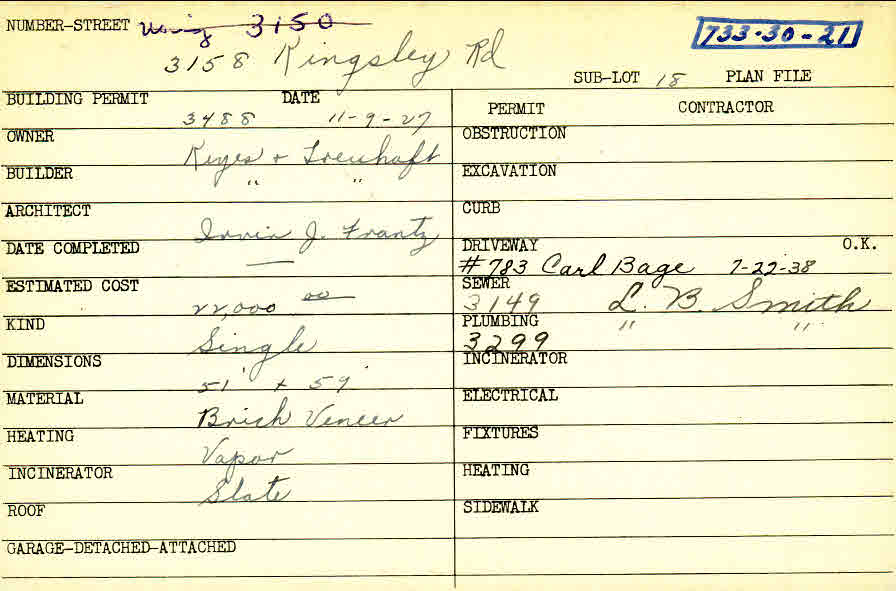 NUMBER-STREET Using 3150
733-30-21
3158 Kingsley Rd
SUB-LOT 18 PLAN FILE
BUILDING PERMIT DATE
3488 11-9-27
PERMIT CONTRACTOR
OWNER
Keyes & Treuhaft
BUILDER
" "
ARCHITECT
Irvin J. Frantz
DATE COMPLETED
—
ESTIMATED COST
22,000 00
KIND
Single
DIMENSIONS
51' x 59'
MATERIAL
Brick Veneer
HEATING
Vapor
INCINERATOR
Slate
ROOF
GARAGE-DETACHED-ATTACHED
OBSTRUCTION
EXCAVATION
CURB
DRIVEWAY O.K.
#783 Carl Bage 7-22-38
SEWER
3149 L. B. Smith
PLUMBING " "
3299
INCINERATOR
ELECTRICAL
FIXTURES
HEATING
SIDEWALK